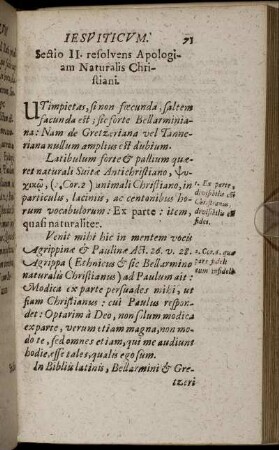 IESVITICVM. 71
Sectio II. resolvens Apologi-
am Naturalis Chri-
stiani.
UT impietas, si non fœcunda, saltem
facunda est; sic forte Bellarminia-
na: Nam de Gretzeriana vel Tanne-
riana nullum amplius est dubium.
Latibulum forte & pastium quæ-
ret naturali Suitæ Antichristiano, Ψυ-
χικῷ, (1. Cor. 2) animali Christiano, in
particulis, laciniis, ac centonibus ho-
rum vocabulorum: Ex parte: item,
quasi naturaliter.
1. Ex parte,
Christianus,
fidei.
Venit mihi hîc in mentem vocis
Agrippinæ & Paulinæ Act. 26. v. 28.
Agrippa (Ethnicus & sic Bellarmino
naturalis Christianus) ad Paulum ait:
Modica ex parte persuades mihi, ut
fiam Christianus: cui Paulus respon-
det: Optarim à Deo, non solum modica
ex parte, verum etiam magna, non mo-
do te, sed omnes etiam, qui me audiunt
hodie, esse tales, qualis ego sum.
2. Cor. 6. quæ
pars fideli
cum infideli.
In Bibliis latinis, Bellarmini & Gre-
tzeri